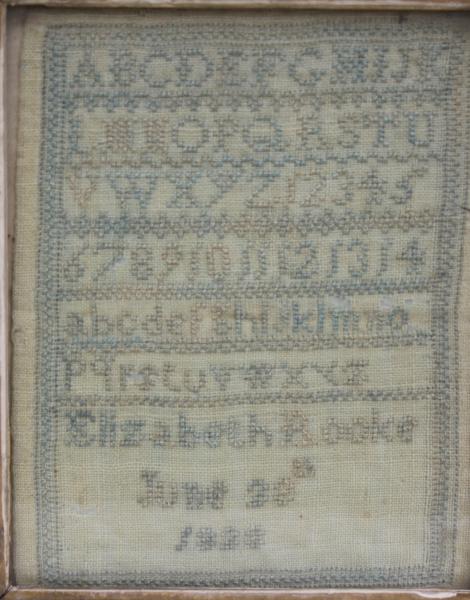 A B C D E F G H I J K
L M N O P Q R S T U
V W X Y Z 1 2 3 4 5
6 7 8 9 10 11 12 13 14
a b c d e f g h i j k l m n o
p q r s t u v w x y z
Elizabeth Rooke
June